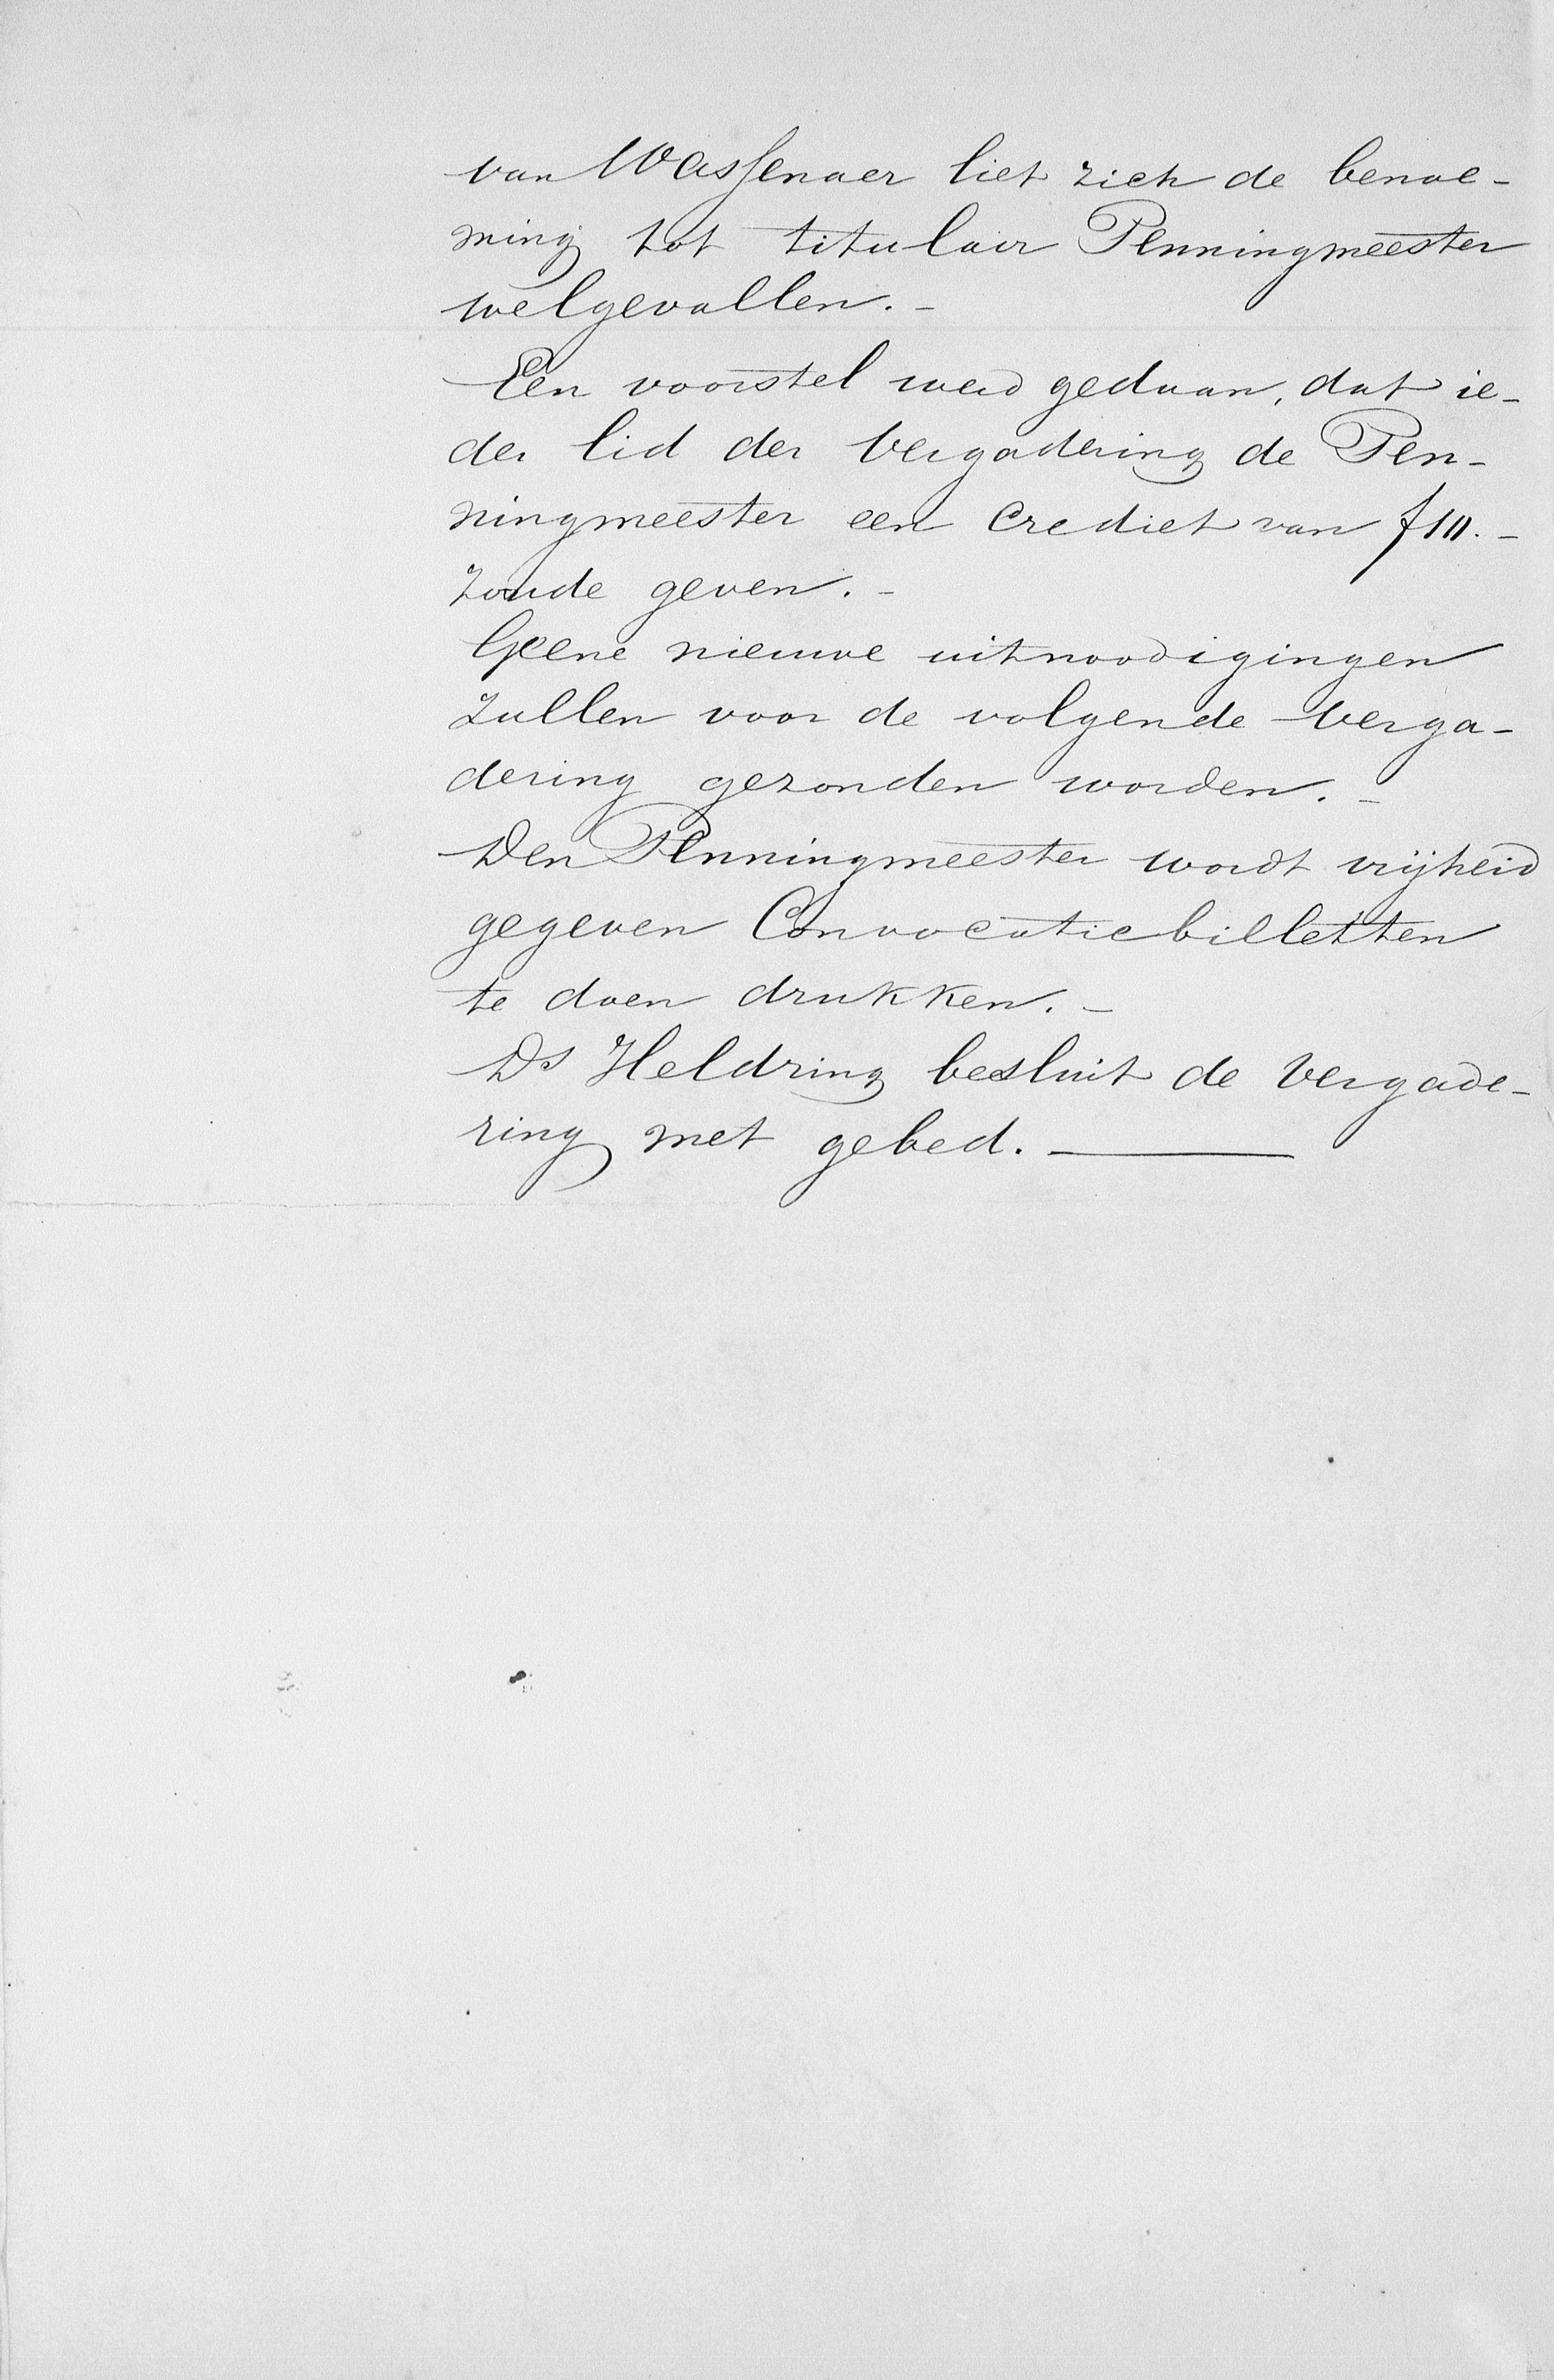 van Wassenaer liet zich de benoe-
ming tot titulair Penningmeester
welgevallen. -
Een voorstel werd gedaan, dat ie-
der lid der Vergadering de Pen-
ningmeester een Crediet van f10. -
zoude geven. -
Geene nieuwe uitnoodigingen
zullen voor de volgende Verga-
dering gezonden worden. -
Den Penningmeester wordt vrijheid
gegeven Convocatiebilletten
te doen drukken. -
Ds Heldring besluit de Vergade-
ring met gebed. —